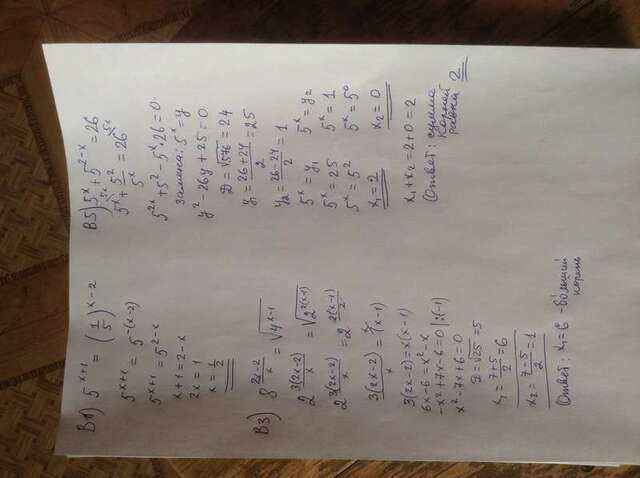 В1) 5^(x+1) = (1/5)^(x-2)
5^(x+1) = 5^(-(x-2))
5^(x+1) = 5^(2-x)
x+1 = 2-x
2x = 1
x = 1/2
В3) 8^((2x-2)/x) = √(4^(x-1))
2^(3(2x-2)/x) = √(2^(2(x-1)))
2^(3(2x-2)/x) = 2^(2(x-1)/2)
3(2x-2)/x = (x-1)
3(2x-2) = x(x-1)
6x-6 = x²-x
-x²+7x-6=0 |:(-1)
x²-7x+6=0
D=√25=5
x₁ = (7+5)/2 = 6
x₂ = (7-5)/2 = 1
Ответ: x₁=6 - больший
корень
В5) 5^x + 5^(2-x) = 26
5^x + 5²/5^x = 26
5^(2x) + 5² - 5^x·26 = 0
замена: 5^x = y
y² - 26y + 25 = 0
D = √576 = 24
y₁ = (26+24)/2 = 25
y₂ = (26-24)/2 = 1
5^x = y₁ 5^x = y₂
5^x = 25 5^x = 1
5^x = 5² 5^x = 5⁰
x₁ = 2 x₂ = 0
x₁ + x₂ = 2+0 = 2
Ответ: сумма
корней
равна 2